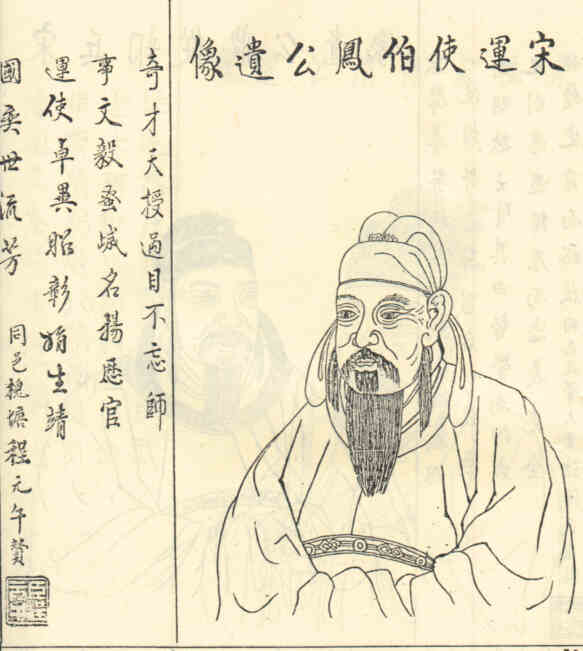 宋運使伯鳳公遺像
奇才天授過目不忘師
事文毅蚤歲名揚歷官
運使卓異昭彰捐生靖
國奕世流芳 同邑槐塘程元午贊